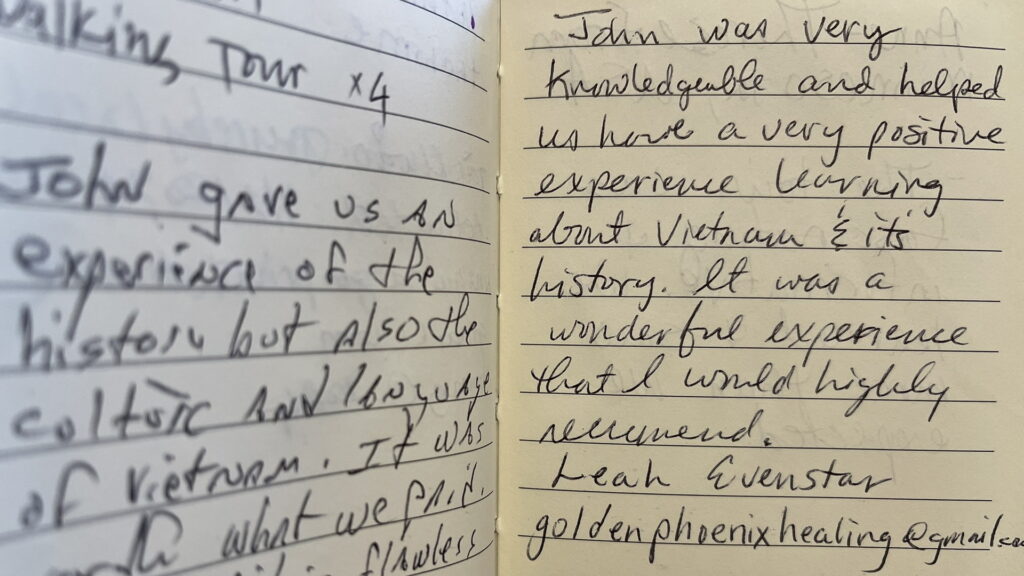 Walking Tour x4
John gave us an
experiince of the
history but also the
coltoic and language
of Vietnam. It was
what we paid.
flawless
John was very
Knowledgeable and helped
us have a very positive
experience learning
about Vietnam & its
history. It was a
wonderful experience
that I would highly
recummend.
Leah Evenstar
goldenphoenixhealing@gmail.com